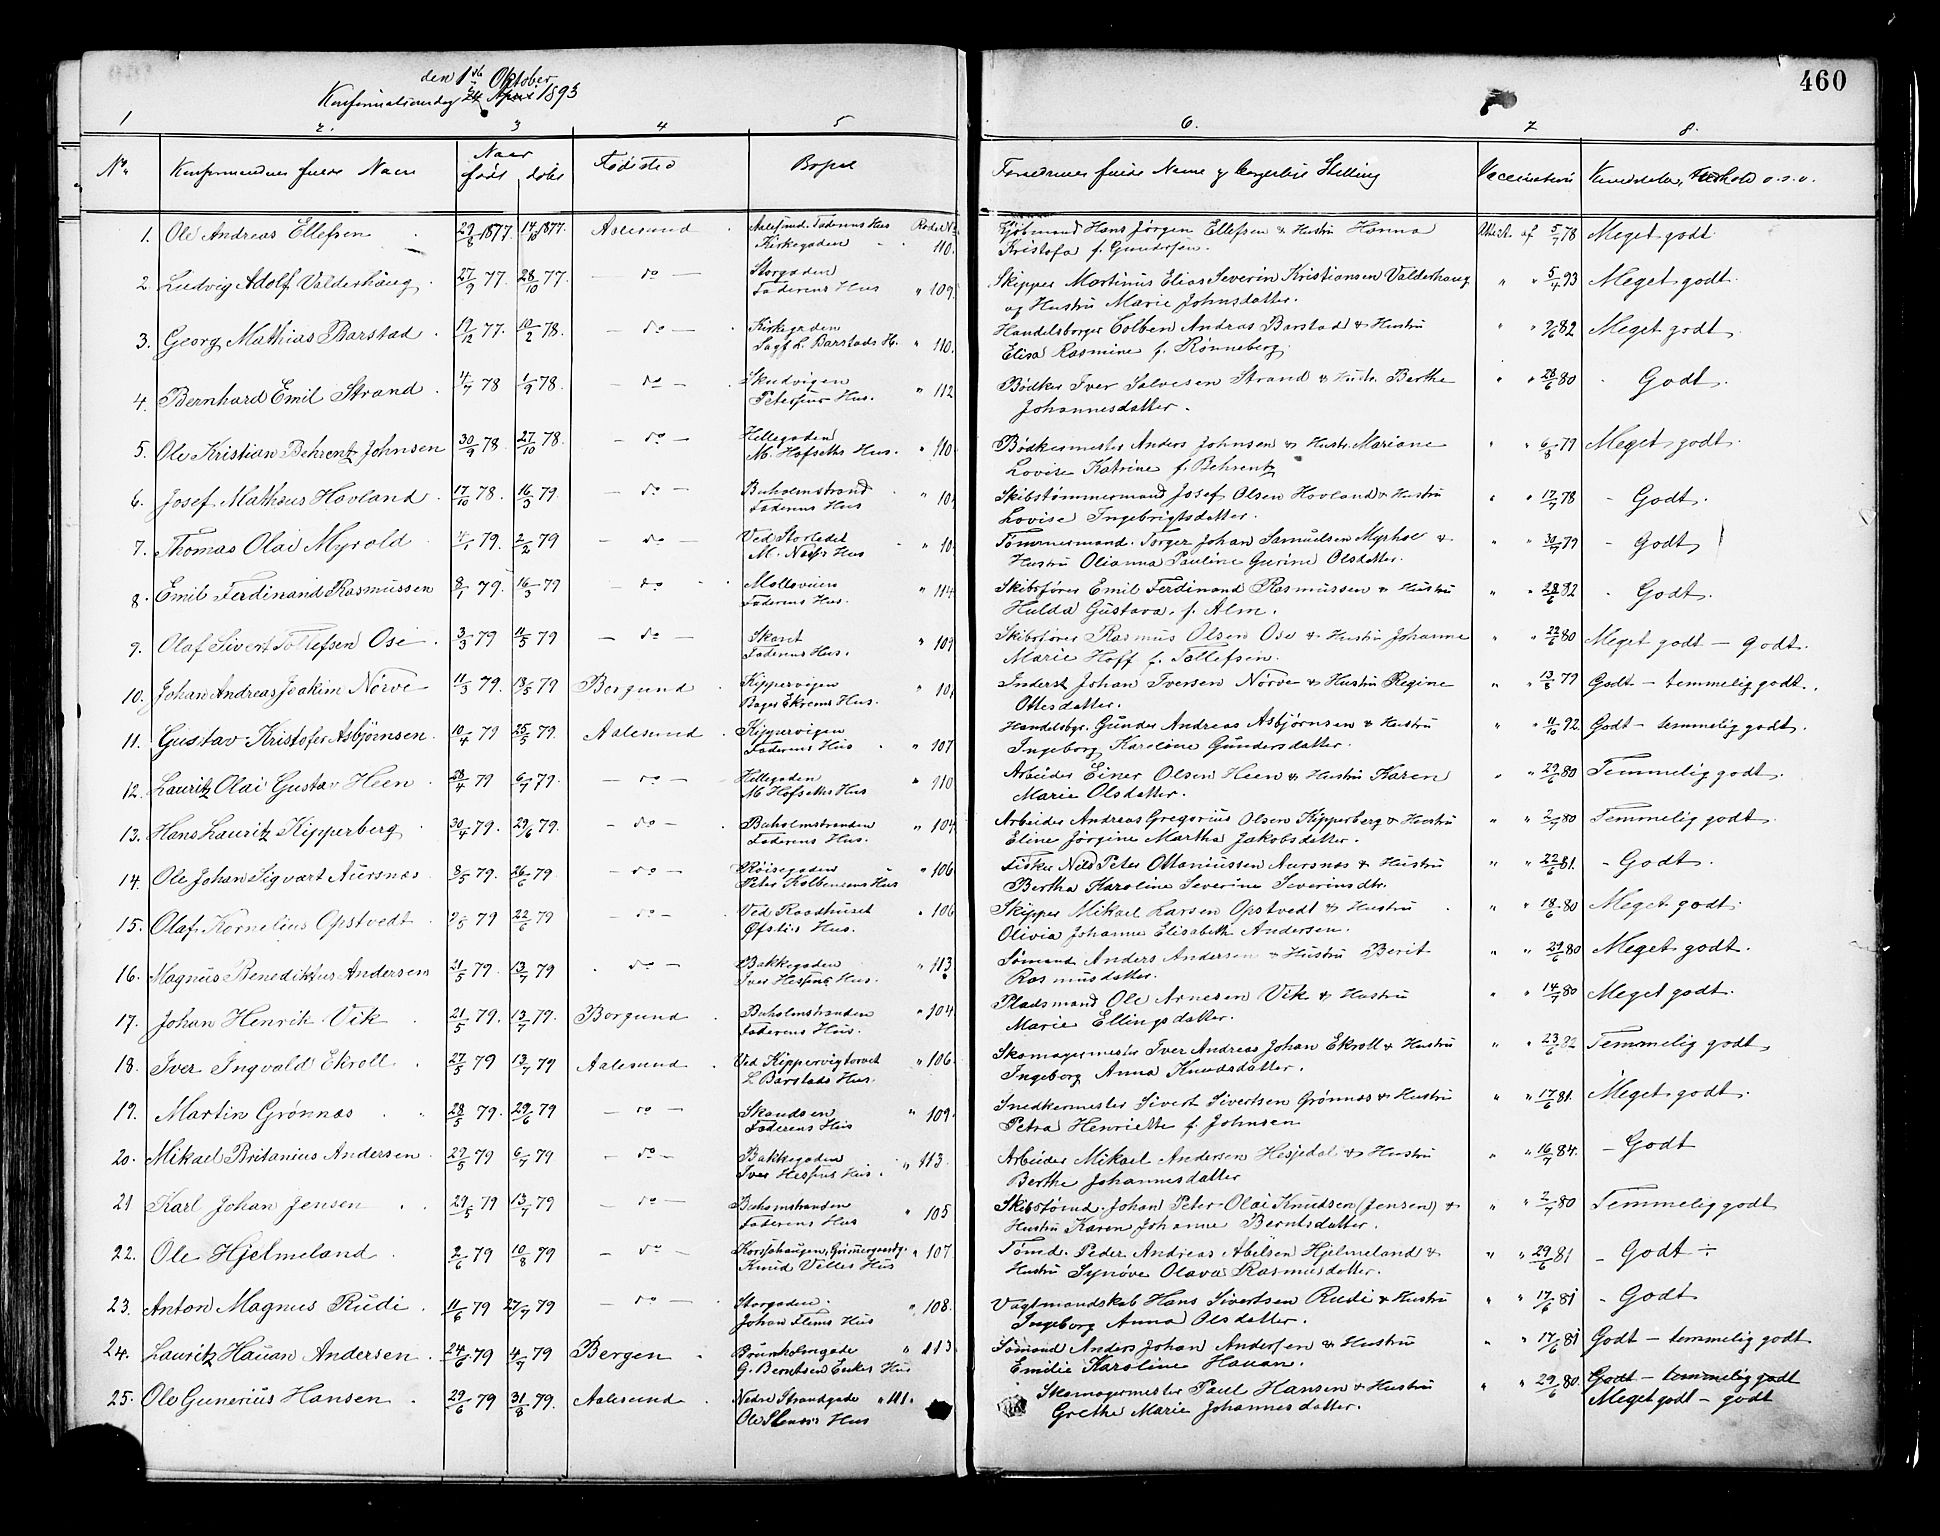 460
den 1ste Oktober
Konfirmationsdag 24 April 1893
1 2. 3 4 5 6. 7 8.
No Konfirmandens fulde Navn Naar født døbt Fødested Bopæl Forældrenes fulde Navne og borgerlige Stilling Vaccination Kundskaber, Forhold o.s.v.
1. Ole Andreas Ellefsen 29/8 1877. 14/10 1877. Aalesund Aalesund. Faderens Hus Rode No
Kirkegaden 110. Kjøbmand Hans Jørgen Ellefsen & Hustru Hanna
Kristofa f. Gundersen. Attest af 5/7 78 Meget godt
2. Ludvig Adolf Valderhaug 27/9 77 28/10 77. – do – Storgaden
Faderens Hus " 109. Skipper Martinus Elias Severin Kristiansen Valderhaug
og Hustru Marie Johnsdatter. " " 5/4 93 Meget godt.
3. Georg Mathias Barstad 19/12 77. 10/2 78. – do – Kirkegaden
Sagf. L. Barstads H. " 110. Handelsborger Colben Andreas Barstad & Hustru
Elisa Rasmine f. Rønneberg. " " 9/6 82 Meget godt
4. Bernhard Emil Strand 4/7 78 1/9 78. – do – Skudvigen
Hus. " 112 Bødker Iver Salvesen Strand & Hustr. Berthe
Johannesdatter. " " 28/6 80 Godt.
5. Ole Kristian Behrentz Johnsen 30/9 78 27/10 78. – do – Hellegaden
M. Hofseths Hus. " 110 Bødkermester Anders Johnsen & Hustr. Mariane
Lovise Katrine f. Behrentz " " 6/8 79 Meget godt.
6. Josef Mathæus Hovland 17/10 78. 16/3 79. – do – Buholmstrand
Faderens Hus " 10 Skibstømmermand Josef Olsen Hovland & Hustru
Lovise Ingebrigtsdatter. " " 17/7 78 – Godt.
7. Thomas Olai Myrold 4/1 79. 2/2 79 – do – Ved Storledet
M. Hus " 10 Tømmermand. Torger Johan Samuelsen Myrhol &
Hustru Olianna Pauline Gurine Olsdatter. " " 30/7 79 – Godt
8. Emil Ferdinand Rasmussen 8/1 79. 16/3 79 – do Molleveien
Faderens Hus. " 114 Skibsfører Emil Ferdinand Rasmussen & Hustru
Hulda Gustava, f. Alm. " " 28/6 82 Godt.
9. Olaf Sivert Tollefsen Ose 3/3 79 11/5 79 – do – Skaret
Faderens Hus. " 109 Skibsfører Rasmus Olsen Ose & Hustru Johanne
Marie Hoff f. Tollefsen. " " 22/6 80 Meget godt – godt.
10. Johan Andreas Joakim Nørve 11/3 79. 18/5 79 Borgund Kippervigen
Bager Ekrems Hus. " 101 Inderst Johan Iversen Nørve & Hustru Regine
Ottesdatter. " " 13/8 79 Godt – temmelig godt.
11. Gustav Kristofer Asbjørnsen 10/4 79 25/5 79. Aalesund Kippervigen
Faderens Hus " 107 Handelsbgr. Gunder Andreas Asbjørnsen & Hustru
Ingeborg Karoline Gundersdatter. " " 11/10 92. Godt – temmelig godt.
12. Lauritz Olai Gustav Heen 28/4 79 6/7 79. – do – Hellegaden
M. Hofseths Hus " 110 Arbeider Einer Olsen Heen & Hustru Karen
Marie Olsdatter. " " 29/6 80 Temmelig godt.
13. Hans Lauritz Kipperberg 30/4 79. 29/6 79. – do – Buholmstranden
Faderens Hus. " 104. Arbeider Andreas Gregorius Olsen Kipperberg & Hustru
Eline Jørgine Martha Jakobsdatter. " " 2/7 80 Temmelig godt.
14. Ole Johan Sigvart Aursnes 3/5 79. 26/6 79. – do – Røisegaden
Peter Kolbensens Hus " 106 Fisker Nils Peter Ottaniussen Aursnes & Hustru
Bertha Karoline Severine Severinsdtr. " " 22/6 81. – Godt.
15. Olaf Kornelius Opstvedt 9/5 79 22/6 79 – do – Ved Raadhuset
Øfstis Hus. " 106 Skipper Mikael Larsen Opstvedt & Hustru
Olivia Johanne Elisabeth Andersen. " " 18/6 80 Meget godt.
16. Magnus Benediktus Andersen 21/5 79. 13/7 79 . do – Bakkegaden
Iver Hespens Hus " 113 Sømand Anders Andersen & Hustru Berit
Rasmusdatter. " " 29/6 80 Meget godt.
17. Johan Henrik Vik 21/5 79. 13/7 79. Borgund Buholmstranden
Faderens Hus. " 104. Pladsmand Ole Arnesen Vik & Hustru
Marie Ellingsdatter. " " 14/7 80 Meget godt.
18. Iver Ingvald Ekroll 27/5 79 13/7 79 Aalesund Ved Kippervigtorvet
L. Barstads Hus. " 106. Skomagermester Iver Andreas Johan Ekroll & Hustru
Ingeborg Anna Knudsdatter. " " 23/6 82 Temmelig godt
19. Martin Grønnes 28/5 79. 29/6 79 – do – Skandsen
Faderens Hus " 109. Snedkermester Sivert Sivertsen Grønnes & Hustru
Petra Henriette f. Johnsen " " 17/6 81. Meget godt.
20. Mikael Britanius Andersen 29/5 79 6/7 79 – do – Bakkegaden
Iver Hespens Hus. " 113. Arbeider Mikael Andersen Hespedal & Hustru
Berthe Johannesdatter " " 16/7 84. – Godt
21 Karl Johan Jensen 29/5 79 13/7 79 – do – Buholmstranden
Faderens Hus " 105 Skibstømd. Johan Peter Olai Knudsen (Jensen) &
Hustru Karen Johanne Berntsdatter. " " 2/7 80 Temmelig godt
22. Ole Hjelmeland 2/6 79 10/8 79 – do – Korsehaugen,
Knud Villes Hus " 107. Tømd. Peder Andreas Abelsen Hjelmeland &
Hustru Synøve Olava Rasmusdatter. " " 29/6 81 – Godt ÷
23. Anton Magnus Rudi 11/6 79 27/7 79 – do – Storgaden.
Johan Flems Hus " 108. Vagtmandskab Hans Sivertsen Rudi & Hustru
Ingeborg Anna Olsdatter. " " 17/6 81 – Godt
24. Lauritz Hauan Andersen 24/6 79 4/9 79 Bergen Brunholmgade
G. Berntsen Enkes Hus " 113 Sømand Anders Johan Andersen & Hustru
Emilie Karoline Hauan. " " 17/6 81 Godt – temmelig godt
25. Ole Gunerius Hansen 29/6 79 31/8 79. Aalesund Nedre Strandgade
Ole Hus " 111. Skomagermester Paul Hansen & Hustru
Grethe Marie Johannesdatter. " " 29/6 80. Godt – temmelig godt
Meget godt – godt